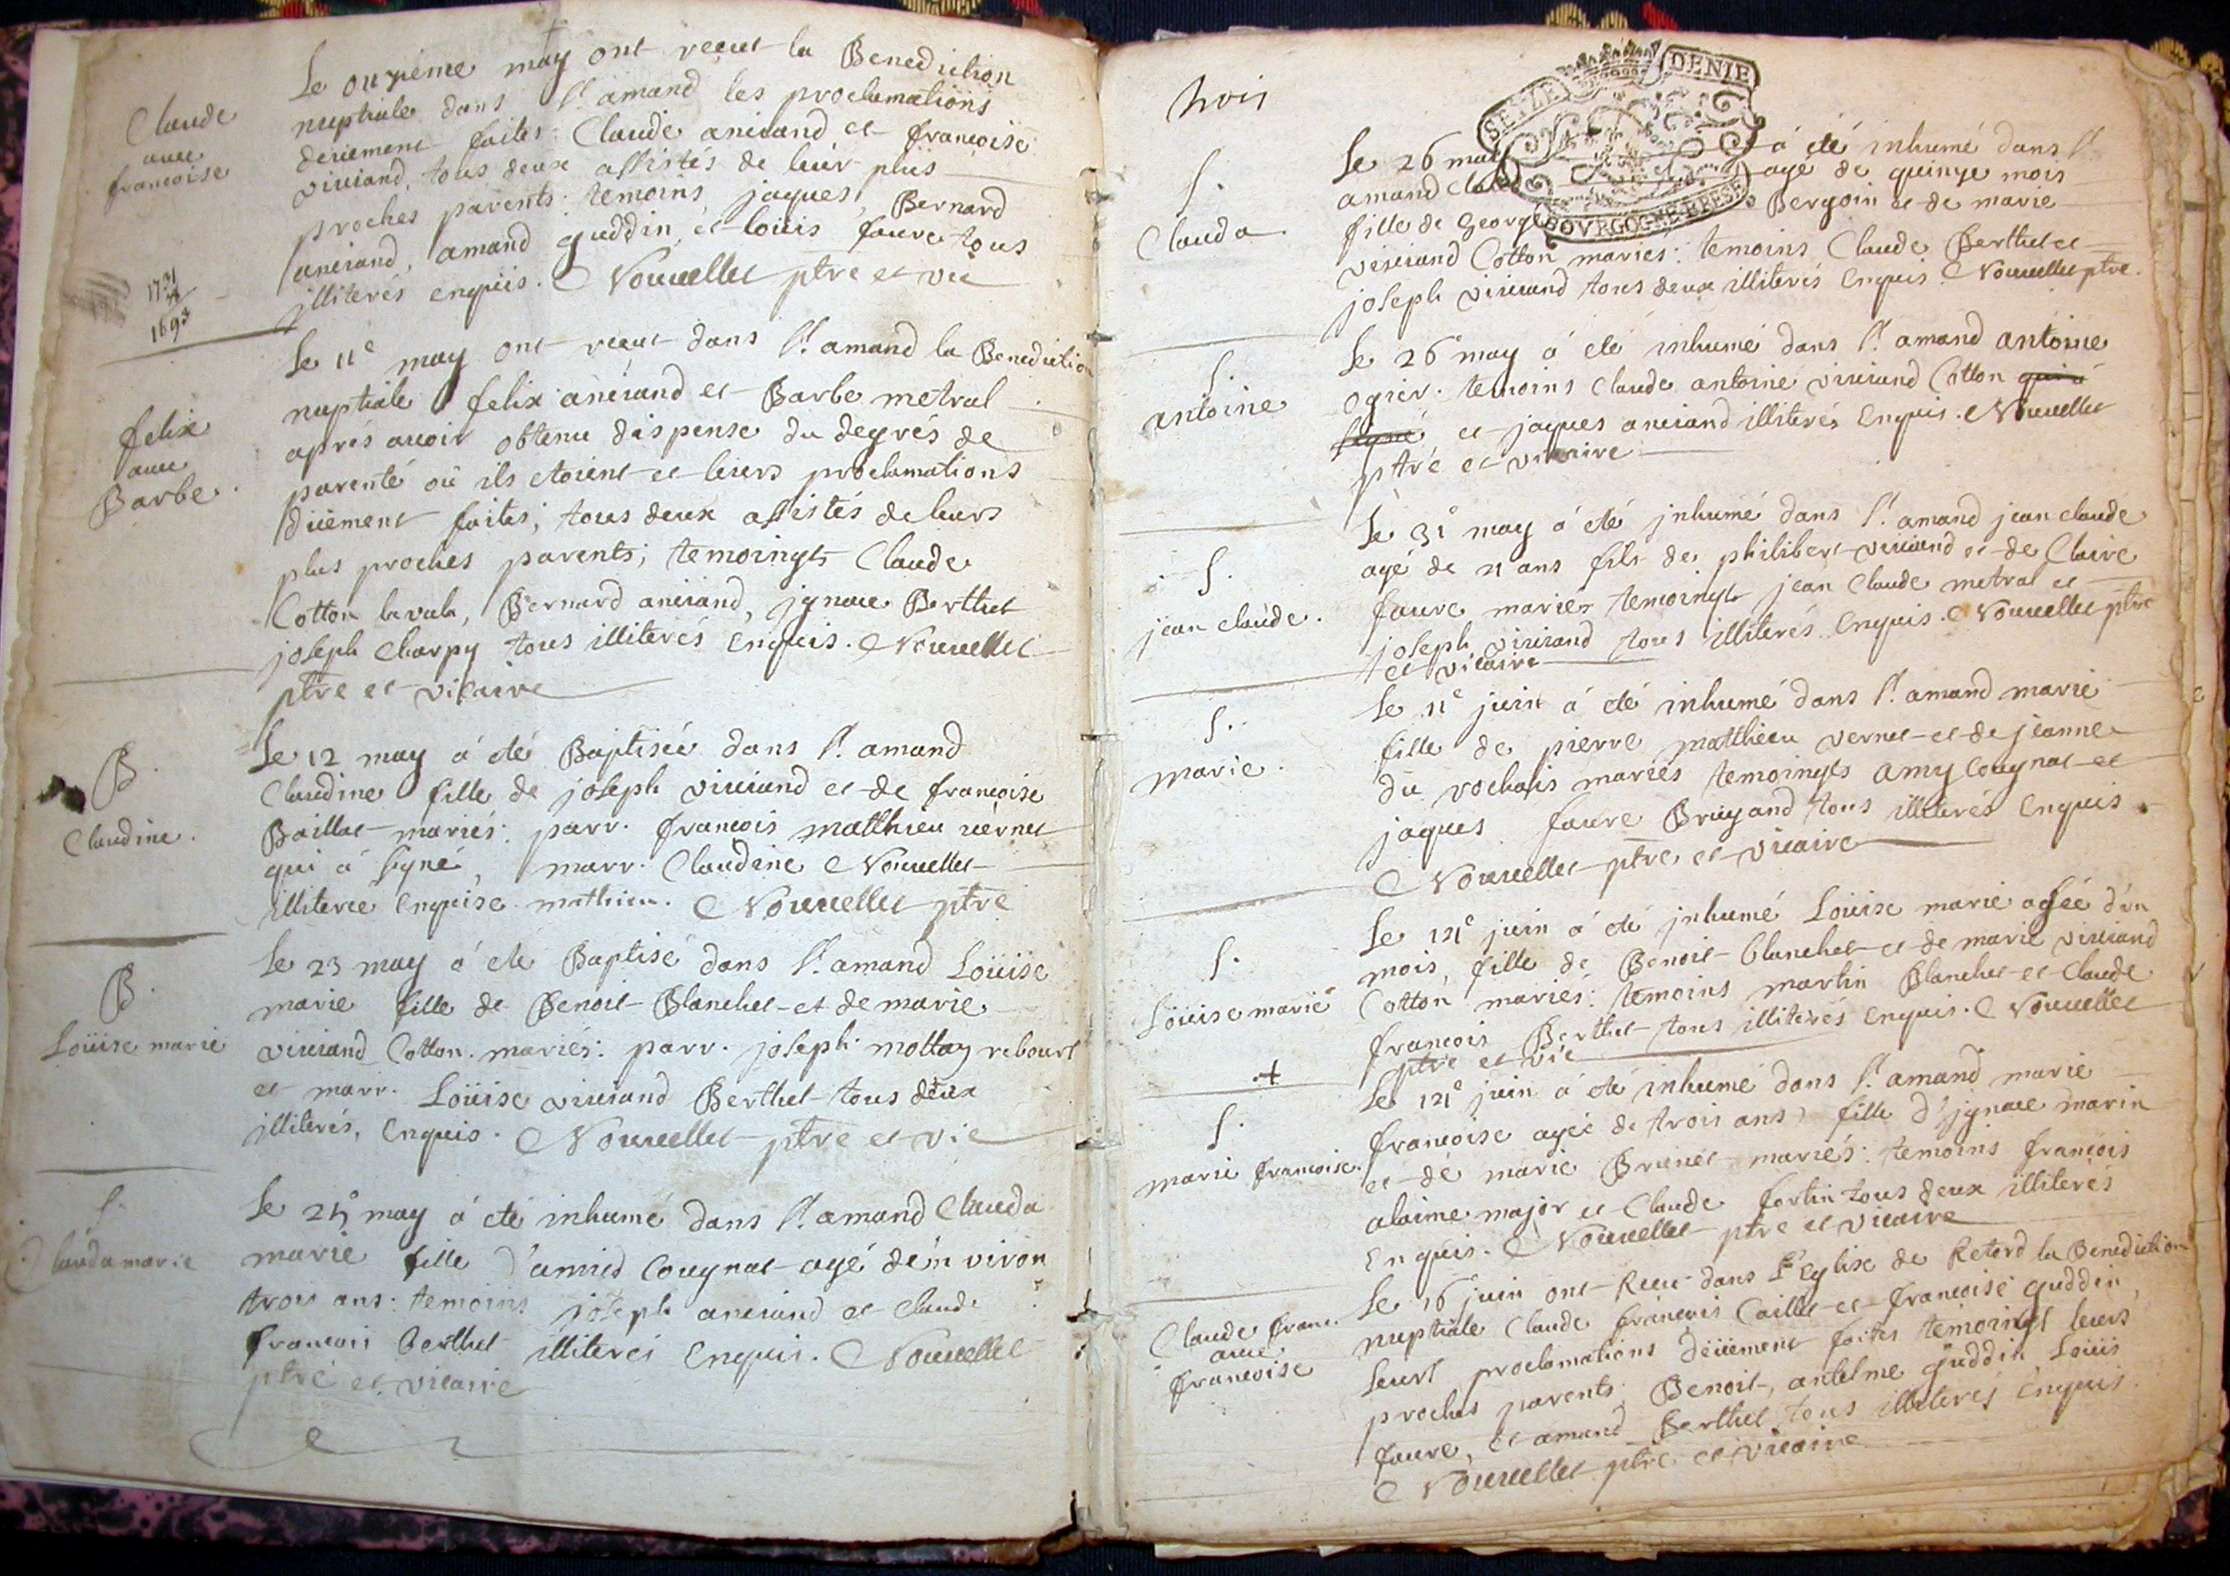 Claude
avec
francoise
Le onzième may ont reçut la Benediction
nuptiale dans St. amand les proclamations
deüement faites: Claude aneiand et francoise
viuiand, tous deux assistés de leür plus
proches parents: temoins jaques, Bernard
aneiand, amand guddin, et loüis faure tous
illiterés enquis. Nouuellet ptre et vic
1731
1693
felix
avec
Barbe.
Le 11e may ont reçut dans St. amand la Benediction
nuptiale felix aneiand et Barbe metral
aprés auoir obtenu dispense du degrés de
parenté où ils etoient et leurs proclamations
düement faites; tous deux assistés de leurs
plus proches parents; temoingts Claude
Cotton lavala, Bernard aneiand, jgnace Berthet
joseph Charpy tous illiterés enquis. Nouuellet
ptre et vicaire
B.
Claudine.
Le 12 may á eté Baptisée dans St. amand
Claudine fille de joseph viuiand et de francoise
Baillat mariés: parr. francois matthieu vernet
qui á signé, marr. Claudine Nouuellet
illiterée enquise. mathieu. Nouuellet ptre
B.
Loüise marie
Le 23 may á eté Baptisé dans St. amand Loüise
marie fille de Benoit Blanchet et de marie
viuiand Cotton. mariés: parr. joseph mottay rebourt
et marr. Loüise viuiand Berthet tous deux
illiterés, enquis. Nouuellet ptre et vic
S.
Clauda marie
Le 25e may á eté inhumé dans St. amand Clauda
marie fille d'amied Cougnat agé d'én viron
trois ans: temoins joseph aneiand et claude
francois Berthet illiterés enquis. Nouuellet
ptré et vicaire
trois
SEIZE DENIE
BOVRGOGNE BRESSE
S.
Clauda.
Le 26 may á été inhumé dans St.
amand agé de quinze mois
fille de George Bergoin et de marie
viuiand Cotton mariés: temoins Claude Berthet et
joseph viuiand tous deux illiterés enquis. Nouuellet ptre.
S.
antoine
Le 26e may á eté inhumé dans St. amand antoine
ogier. temoins claude antoine viuiand Cotton qui á
signé, et jaques aneiand illiterés enquis. Nouuellet
ptré et vicaire
S.
jean claude.
Le 31e may á eté jnhumé dans St. amand jean claude
agé de 21 ans fils de philibert viuiand et de Claire
faure mariés temoingts jean claude metral et
joseph viuiand tous illiterés enquis. Nouuellet ptre
et vicaire
S.
marie.
Le 11e juin á eté inhumé dans St. amand marie
fille de pierre matthieu vernet et de jeanne
du rochais mariés temoingts amy Cougnat et
jaques faure Bruyand tous illiterés enquis
Nouuellet ptre et vicaire
S.
Loüise marie
Le 121e juin á eté jnhumé Loüise marie agéé d'un
mois, fille de Benoit blanchet et de marie viuiand
Cotton mariés: temoins martin Blanchet et Claude
francois Berthet tous illiterés enquis. Nouuellet
ptre et vic
S.
marie francoise.
Le 121e juin á eté inhumé dans St. amand marie
francoise agéé de trois ans, fille d'jgnace marin
et de marie Brunet mariés: temoins francois
alaime major et Claude fortin tous deux illiterés
enquis. Nouuellet ptre et vicaire
Claude franc.
avec
francoise
Le 16e juin ont Recu dans L'Eglise de Retord la Benediction
nuptiale Claude francois Caillet et francoise guddin
leurs proclamations deüement faites temoingts leurs
proches parents. Benoit, antelme guddin, Loüis
faure, et amand Berthet tous illiterés enquis.
Nouuellet ptre et vicaire